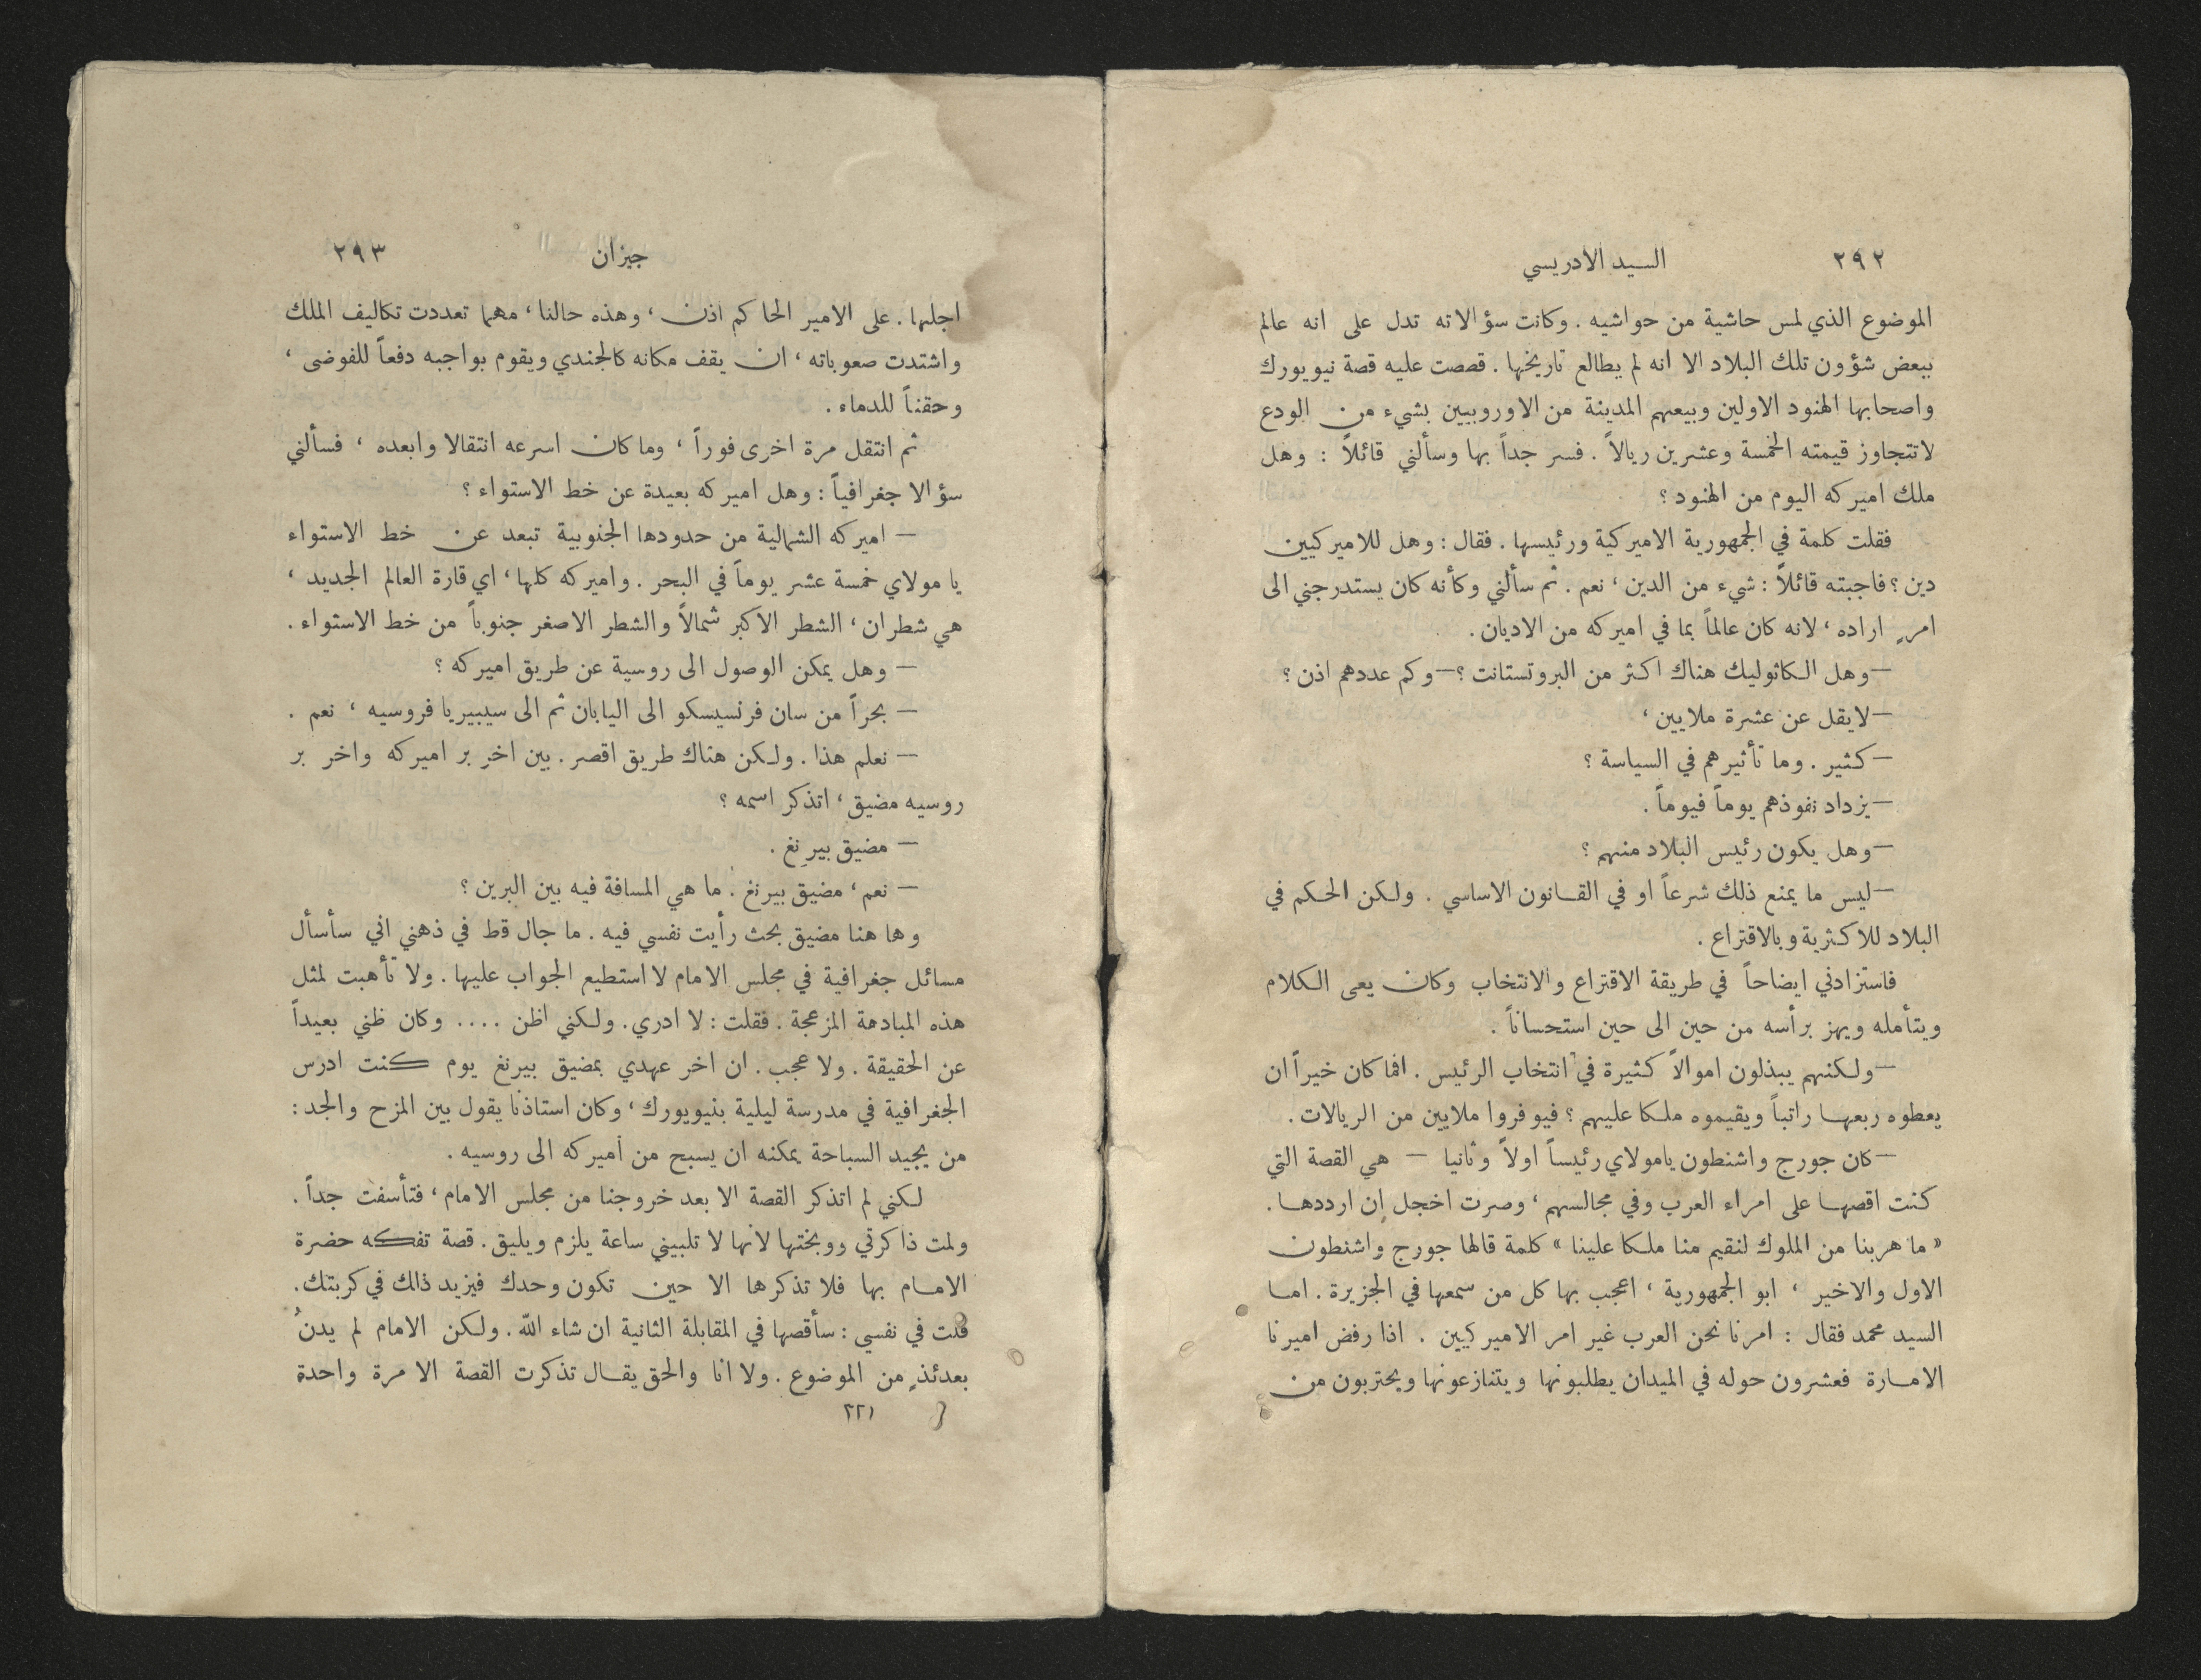 ٢٩٢ السيد الادريسي
الموضوع الذي لمس حاشية من حواشيه . وكانت سؤالاته تدل على انه عالم
ببعض شؤون تلك البلاد الا انه لم يطالع تاريخها . قصصت عليه قصة نيويورك
واصحابها الهنود الاولين وبيعهم المدينة من الاوروبيين بشيء من الودع
لا تتجاوز قيمته الخمسة وعشرين ريالاً . فسر جداً بها وسألني قائلاً : وهل
ملك اميركه اليوم من الهنود ؟
فقلت كلمة في الجمهورية الاميركية ورئيسها . فقال : وهل للاميركيين
دين ؟ فاجبته قائلاً : شيء من الدين ، نعم . ثم سألني وكأنه كان يستدرجني الى
امرٍ اراده ، لانه كان عالماً بما في اميركه من الاديان .
— وهل الكاثوليك هناك اكثر من البروتستانت ؟ — وكم عددهم اذن ؟
— لايقل عن عشرة ملايين ،
— كثير . وما تأثيرهم في السياسة ؟
— يزداد نفوذهم يوماً فيوماً .
— وهل يكون رئيس البلاد منهم ؟
— ليس ما يمنع ذلك شرعاً او في القانون الاساسي . ولكن الحكم في
البلاد للاكثرية وبالاقتراع .
فاستزادني ايضاحاً في طريقة الاقتراع والانتخاب وكان يعى الكلام
ويتأمله ويهز برأسه من حين الى حين استحساناً .
— ولكنهم يبذلون اموالاً كثيرة في انتخاب الرئيس . افما كان خيراً ان
يعطوه ربعها راتباً ويقيموه ملكا عليهم ؟ فيوفروا ملايين من الريالات .
— كان جورج واشنطون يامولاي رئيساً اولاً وثانيا — هي القصة التي
كنت اقصها على امراء العرب وفي مجالسهم ، وصرت اخجل ان ارددها .
« ما هربنا من الملوك لنقيم منا ملكا علينا » كلمة قالها جورج واشنطون
الاول والاخير ، ابو الجمهورية ، اعجب بها كل من سمعها في الجزيرة . اما
السيد محمد فقال : امرنا نحن العرب غير امر الاميركيين . اذا رفض اميرنا
الامارة فعشرون حوله في الميدان يطلبونها ويتنازعونها ويحتربون من
جيزان ٢٩٣
اجلها . على الامير الحاكم اذن ، وهذه حالنا ، مهما تعددت تكاليف الملك
واشتدت صعوباته ، ان يقف مكانه كالجندي ويقوم بواجبه دفعاً للفوضى ،
وحقناً للدماء .
ثم انتقل مرة اخرى فوراً ، وما كان اسرعه انتقالا وابعده ، فسألني
سؤالا جغرافياً : وهل اميركه بعيدة عن خط الاستواء ؟
— اميركه الشمالية من حدودها الجنوبية تبعد عن خط الاستواء
يا مولاي خمسة عشر يوماً في البحر . واميركه كلها ، اي قارة العالم الجديد ،
هي شطران ، الشطر الاكبر شمالاً والشطر الاصغر جنوباً من خط الاستواء .
— وهل يمكن الوصول الى روسية عن طريق اميركه ؟
— بحراً من سان فرنسيسكو الى اليابان ثم الى سيبيريا فروسيه ، نعم .
— نعلم هذا . ولكن هناك طريق اقصر . بين اخر بر اميركه واخر بر
روسيه مضيق ، اتذكر اسمه ؟
— مضيق بيرنغ .
— نعم ، مضيق بيرنغ . ما هي المسافة فيه بين البرين ؟
وها هنا مضيق بحث رأيت نفسي فيه . ما جال قط في ذهني اني سأسأل
مسائل جغرافية في مجلس الامام لا استطيع الجواب عليها . ولا تأهبت لمثل
هذه المبادهة المزعجة . فقلت : لا ادري . ولكني اظن .... وكان ظني بعيداً
عن الحقيقة . ولا عجب . ان اخر عهدي بمضيق بيرنغ يوم كنت ادرس
الجغرافية في مدرسة ليلية بنيويورك ، وكان استاذنا يقول بين المزح والجد :
من يجيد السباحة يمكنه ان يسبح من أميركه الى روسيه .
لكني لم اتذكر القصة الا بعد خروجنا من مجلس الامام ، فتأسفت جداً .
ولمت ذاكرتي ووبختها لانها لا تلبيني ساعة يلزم ويليق . قصة تفكه حضرة
الامام بها فلا تذكرها الا حين تكون وحدك فيزيد ذالك في كربتك .
قلت في نفسي : سأقصها في المقابلة الثانية ان شاء الله . ولكن الامام لم يدنُ
بعدئذٍ من الموضوع . ولا انا والحق يقال تذكرت القصة الا مرة واحدة
٢٢١